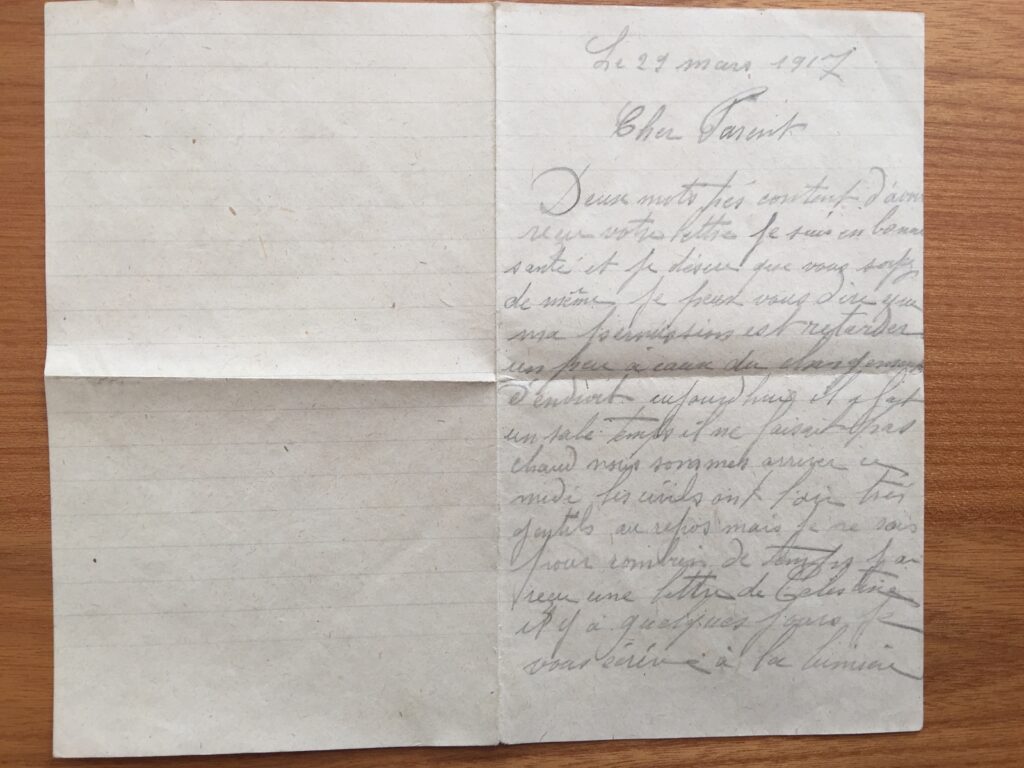 Le 29 mars 1917
Cher Parent
Deux mots très content d'avoir
reçu votre lettre je suis en bonne
santé et je désire que vous soyez
de même je peux vous dire que
ma permission est retarder
un peu à cause du changement
d'endroit aujourd'hui il y fait
un sale temps il ne faisait pas
chaud nous sommes arriver ce
midi les civils ont l'air très
gentils au repos mais je ne sais
pour combien de temps j'ai
reçu une lettre de Celestine
il y à quelques jours je
vous à la lumière